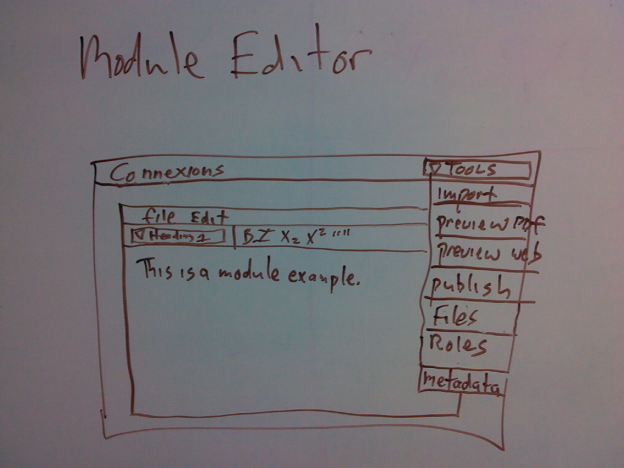 Module Editor
Connexions
▽ Tools
import
preview PDF
preview web
publish
Files
Roles
metadata
file Edit
▽ Heading 1 B I X₂ X² """
This is a module example.